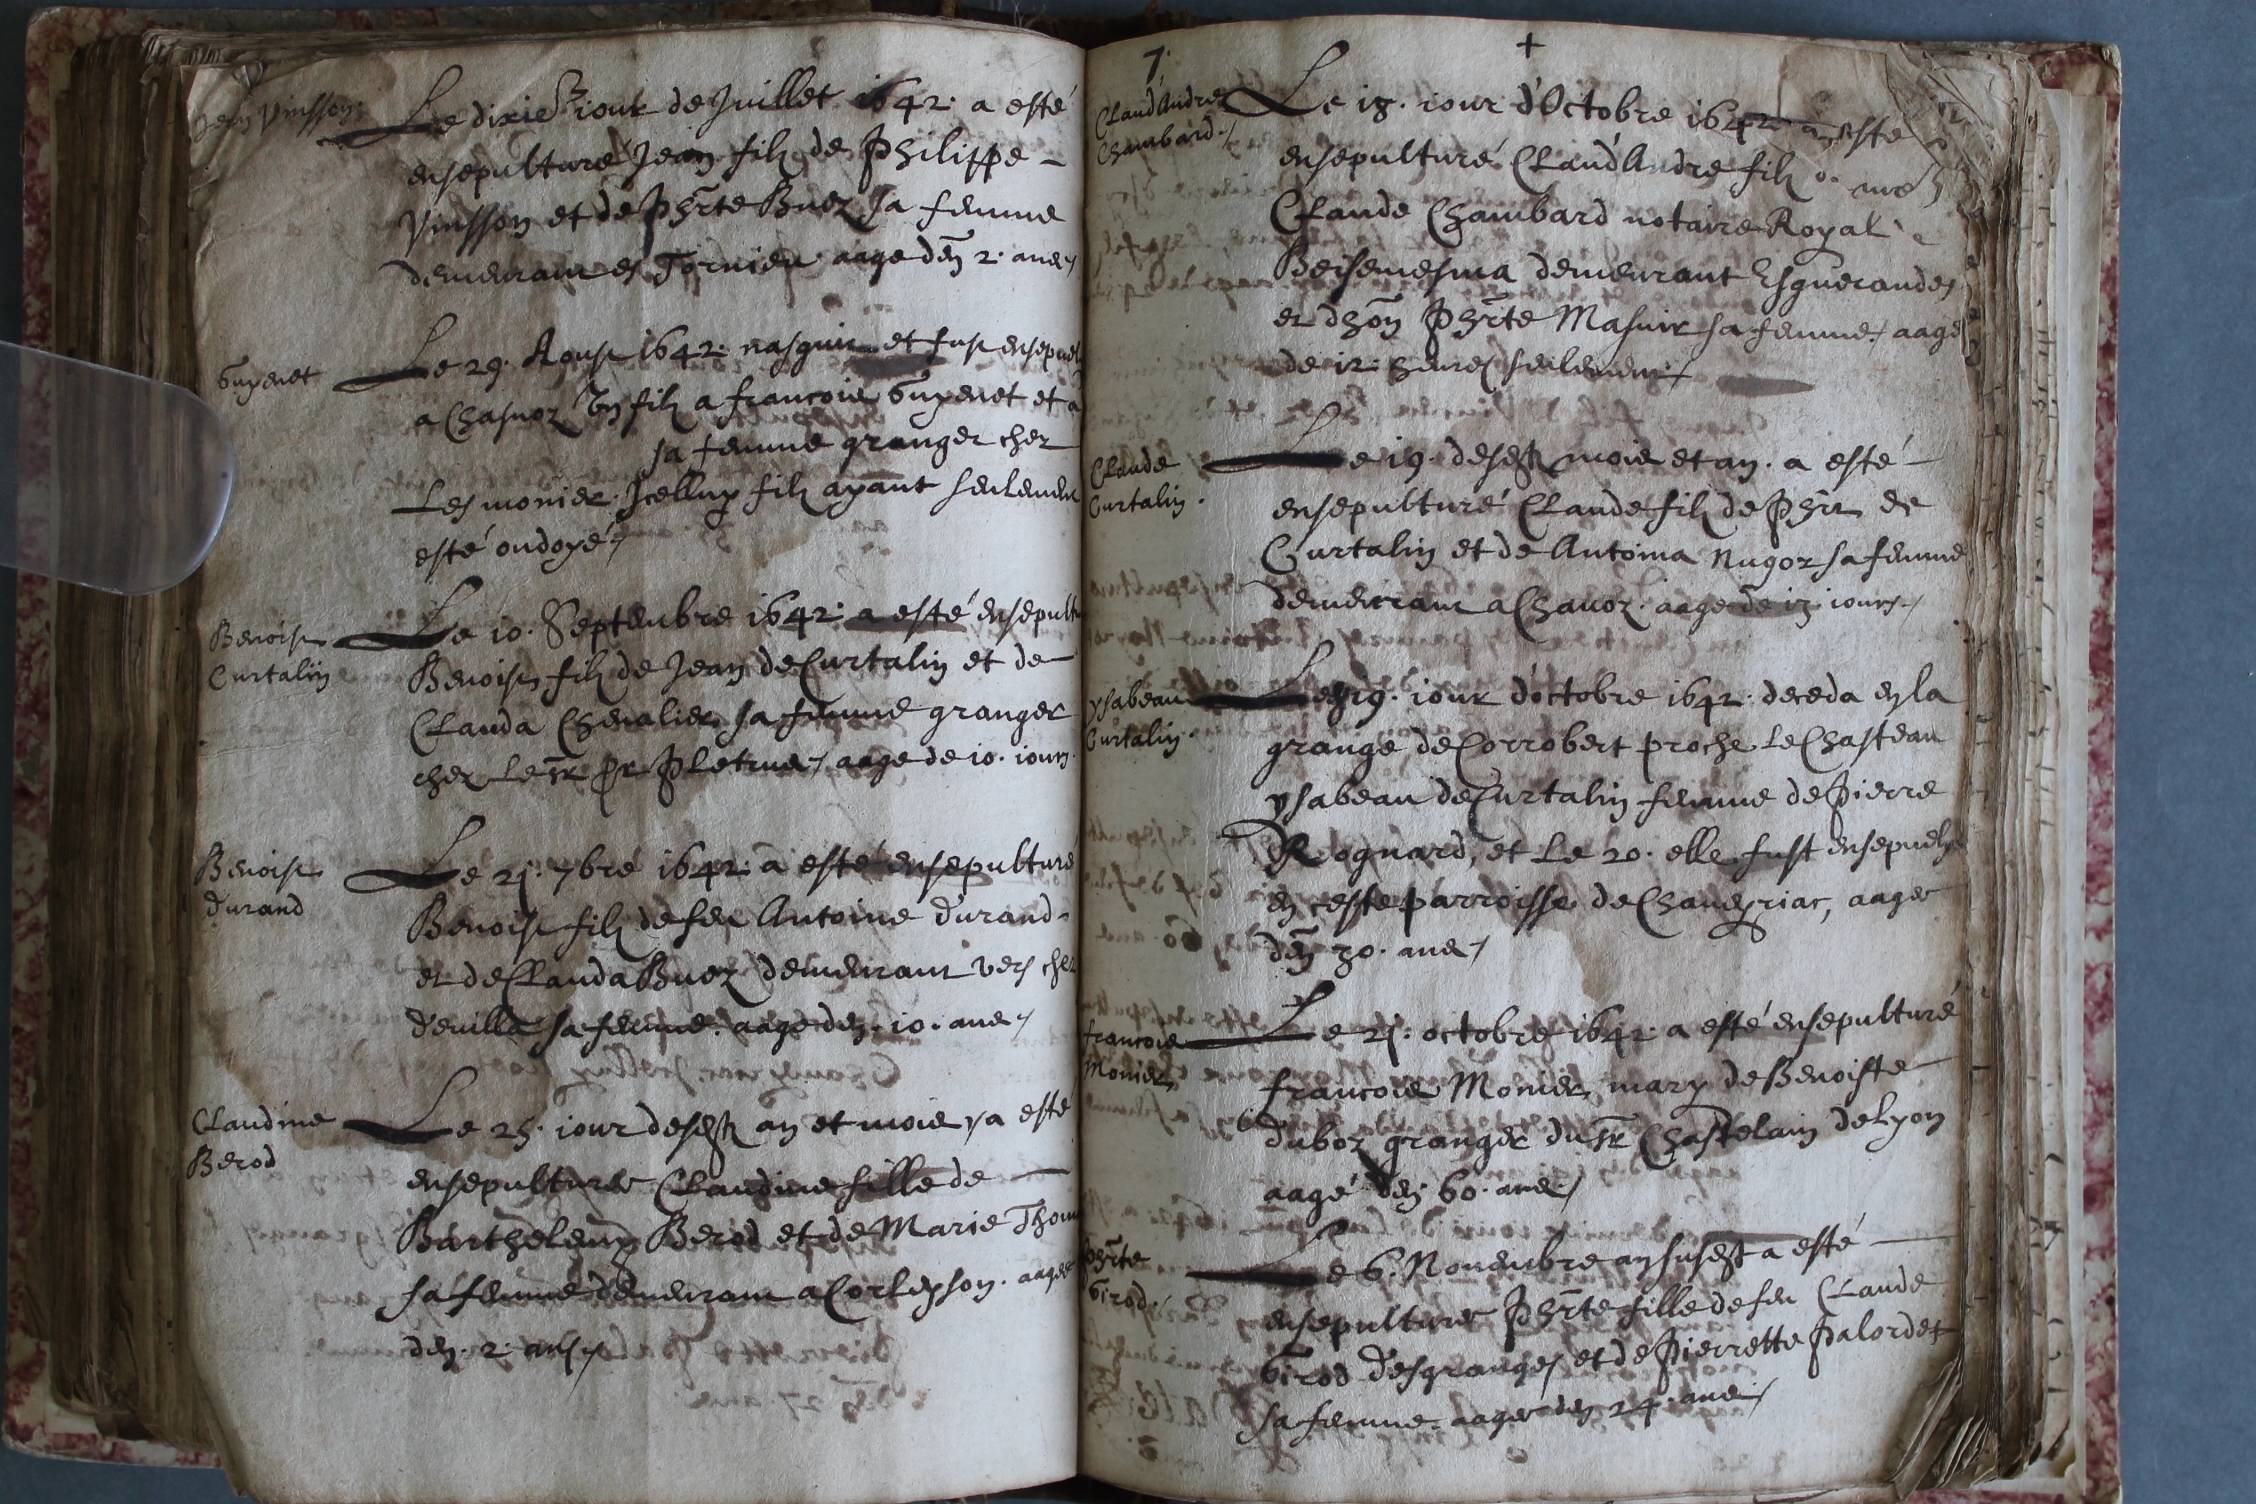 Jean Vinsson.
Le dixie^e jour de Juillet 1642. a esté
ensepulturé Jean filz de Philippe
Vinsson et de Ph̃rte Buoz sa femme
demeurant es Tornieu. aage den̄ 2. ans
Guyenet
Le 29. Aoust 1642. nasquit et fust ensepuel
a Chasnoz Un filz a francois Guyenet et a
sa femme granger chez
Les monier. Icelluy filz ayant seulement
esté ondoyé
Benoist
Curtalin
Le 10. Septembre 1642. a esté ensepultu
Benoist filz de Jean de Curtalin et de
Clauda Chevalier sa femme granger
chez Le sr aage de 10. jours.
Benoist
durand
Le 21. 7bre 1642. a esté ensepulturé
Benoist filz de feu Antoine durand
et de Clauda Buoz demeurant vers chez
deuilla sa femme. aage den. 10. ans
Claudine
Berod
Le 25. jour desest an et mois ya esté
ensepulturee Claudine fille de
Barthelemy Berod et de Marie Thom
sa femme demeurant a Corleyson. aagee
den. 2. ans
7.
+
Claud'Andre
Chambard
Le 18. jour d'Octobre 1642 a esté
ensepulturé Claud'Andre filz
Claude Chambard notaire Royal
demeurant Esguerandes
et dhon̄ Ph̃rte Masuir sa femme. aage
de 12. heures seulement
Claude
Curtalin.
Le 19. desest mois et an. a esté
ensepulturé Claude filz de Phrt de
Curtalin et de Antoina Nugoz sa femme
demeurant a Chavoz. aage de 13 jours.
ysabeau
Curtalin.
Le 19. jour doctobre 1642. deceda en la
grange de Corrobert proche le Chasteau
ysabeau de Curtalin femme de Pierre
Rognard, et Le 20. elle fust ensepuely
en ceste parroisse de Chaveyriac, aagee
den̄ 30. ans
francois
Monier
Le 21. octobre 1642. a esté ensepulturé
francois Monier mary de Benoiste
duboz granger du sr Chastelain de Lyon
aagé den. 60. ans
Ph̃rte
Girod.
Le 6. Novembre an susest a esté
ensepulturee Ph̃rte fille de feu Claude
Girod desgranges et de Pierrette Palordet
sa femme. aagee den 24. ans